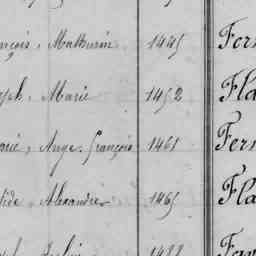 nçois, Mathurin 1445 Fer
seph, Marie 1452 Fla
arie, Ange-François 1461 Fer
lide, Alexandre 1465 Fla